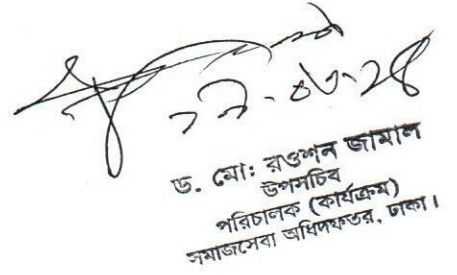 ড. মো: রওশন জামাল
উপসচিব
পরিচালক (কার্যক্রম)
সমাজসেবা অধিদফতর, ঢাকা।